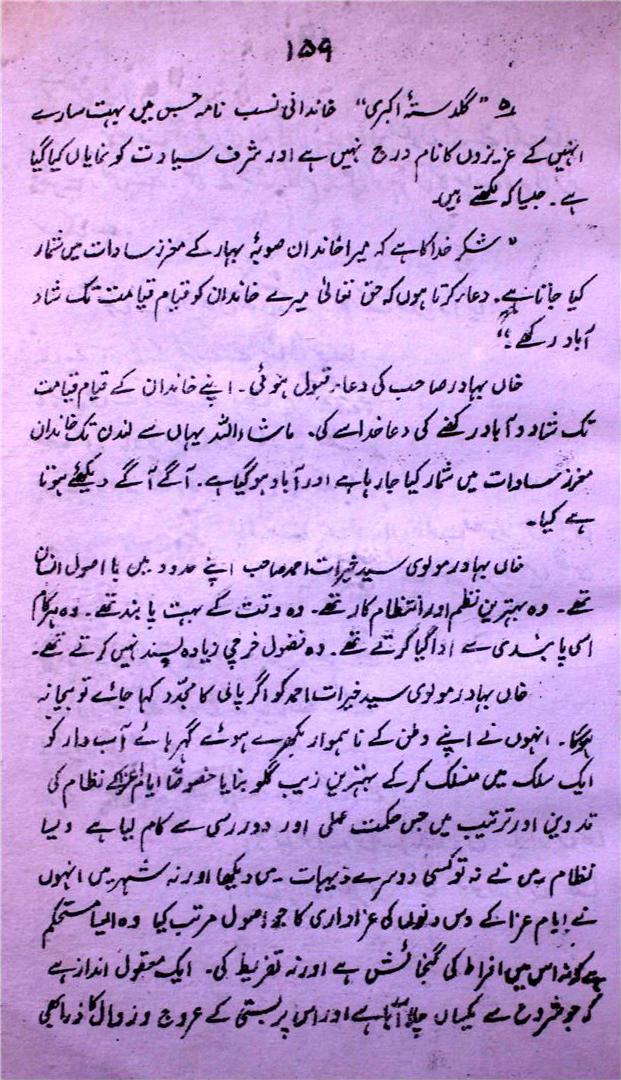 ۱۵۹
۵ـ "گلدستۂ اکبری" خاندانی نسب نامہ جس میں بہت سارے
انہیں کے عزیزوں کا نام درج نہیں ہے اور شرف سیادت کو نمایاں کیا گیا
ہے۔ جیسا کہ لکھتے ہیں۔
"شکر خدا کا ہے کہ میرا خاندان صوبۂ بہار کے معزز سادات میں شمار
کیا جاتا ہے۔ دعا کرتا ہوں کہ حق تعالیٰ میرے خاندان کو قیام قیامت تک شاد
آباد رکھے۔"
خاں بہادر صاحب کی دعا قبول ہوئی۔ اپنے خاندان کے قیام قیامت
تک شاد و آباد رکھنے کی دعا خدا سے کی۔ ماشاءاللہ یہاں سے لندن تک خاندان
معزز سادات میں شمار کیا جا رہا ہے اور آباد ہو گیا ہے۔ آگے آگے دیکھئے ہوتا
ہے کیا۔
خاں بہادر مولوی سید خیرات احمد صاحب اپنے حدود میں با اصول انسان
تھے۔ وہ بہترین نظم اور انتظام کار تھے۔ وہ وقت کے بہت پابند تھے۔ وہ ہر کام
اسی پابندی سے ادا کیا کرتے تھے۔ وہ فضول خرچی زیادہ پسند نہیں کرتے تھے۔
خاں بہادر مولوی سید خیرات احمد کو اگر پالی کا مجدّد کہا جائے تو بیجا نہ
ہوگا۔ انہوں نے اپنے وطن کے ناہموار بکھرے ہوئے گہر ہائے آب دار کو
ایک سلک میں منسلک کر کے بہترین زیب گلو بنایا خصوصاً ایام عزا کے نظام کی
تدوین اور ترتیب میں جس حکمت عملی اور دور رسی سے کام لیا ہے ویسا
نظام میں نے نہ تو کسی دوسرے دیہات میں دیکھا اور نہ شہر میں انہوں
نے ایام عزا کے دس دنوں کی عزاداری کا جو اصول مرتب کیا وہ ایسا مستحکم
ہے کہ نہ اس میں افراط کی گنجائش ہے اور نہ تفریط کی۔ ایک معقول انداز ہے
کہ جو شروع سے یکساں چلا آرہا ہے اور اس پر بستی کے عروج و زوال کا ذرا بھی